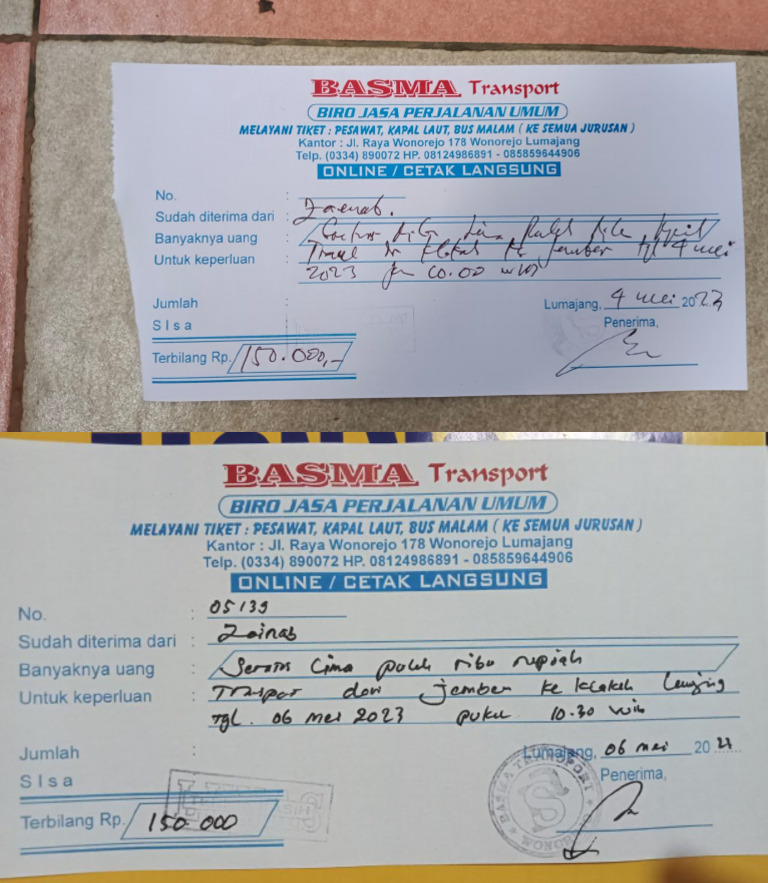 BASMA Transport
BIRO JASA PERJALANAN UMUM
MELAYANI TIKET : PESAWAT, KAPAL LAUT, BUS MALAM ( KE SEMUA JURUSAN )
Kantor : Jl. Raya Wonorejo 178 Wonorejo Lumajang
Telp. (0334) 890072 HP. 08124986891 - 085859644906
ONLINE / CETAK LANGSUNG
No. :
Sudah diterima dari : Zaenab.
Banyaknya uang :
Untuk keperluan : Travel Jember tgl 4 mei
2023 10.00
Jumlah :
SIsa
Lumajang, 4 mei 2023
Penerima,
Terbilang Rp. 150.000,-
BASMA Transport
BIRO JASA PERJALANAN UMUM
MELAYANI TIKET : PESAWAT, KAPAL LAUT, BUS MALAM ( KE SEMUA JURUSAN )
Kantor : Jl. Raya Wonorejo 178 Wonorejo Lumajang
Telp. (0334) 890072 HP. 08124986891 - 085859644906
ONLINE / CETAK LANGSUNG
No. : 05139
Sudah diterima dari : Zainab
Banyaknya uang : lima puluh ribu rupiah
Untuk keperluan : dari jember ke klakah
Tgl. 06 mei 2023 pukul 10.30 wib
Jumlah :
SIsa
Lumajang, 06 mei 20
Penerima,
BASMA TRANSPORT
Terbilang Rp. 150 000